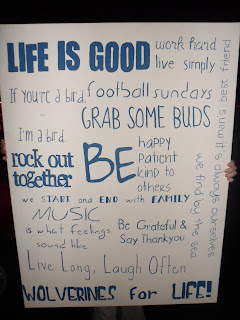 LIFE IS GOOD
work hard
live simply
If you're a bird,
...
I'm a bird.
football sundays
GRAB SOME BUDS
rock out
together
BE
happy
Patient
kind to
others
we START and END with FAMILY
MUSIC
is what feelings
sound like
Be Grateful &
Say Thankyou
Live Long, Laugh Often
WOLVERINES for LIFE!
we find by the sea
it's always ourselves